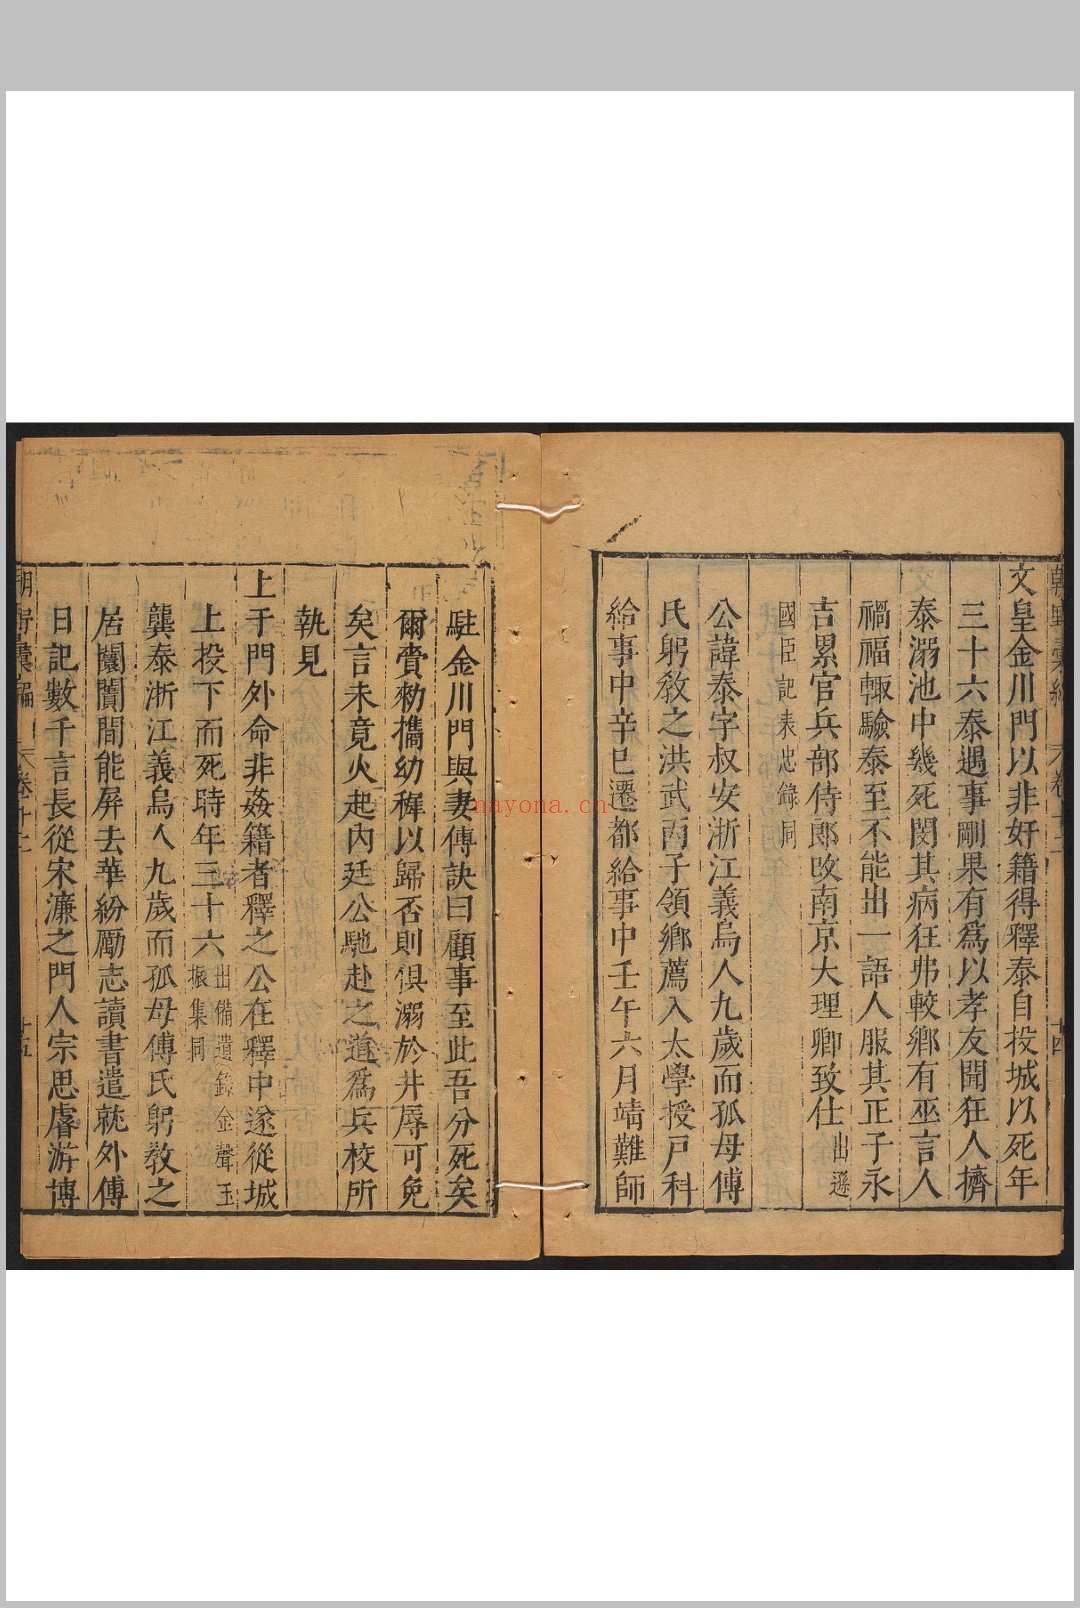 文皇金川門以非奸籍得釋泰自投城以死年
三十六泰遇事剛果有爲以孝友聞狂人擠
泰溺池中幾死閔其病狂弗較鄉有巫言人
禍福輒驗泰至不能出一語人服其正子永
吉累官兵部侍郎改南京大理卿致仕出遜
國臣記表忠錄同
公諱泰字叔安浙江義烏人九歲而孤母傅
氏躬敎之洪武丙子領鄉薦入太學授戶科
給事中辛巳遷都給事中壬午六月靖難師
駐金川門與妻傅訣曰顧事至此吾分死矣
爾賫勑攜幼穉以歸否則俱溺於井辱可免
矣言未竟火起內廷公馳赴之道爲兵校所
執見
上于門外命非姦籍者釋之公在釋中遂從城
上投下而死時年三十六出備遺錄金聲玉
振集同
龔泰浙江義烏人九歲而孤母傅氏躬敎之
居闤闠間能屏去華紛勵志讀書遣就外傅
日記數千言長從宋濂之門人宗思睿游博
nayona.cn